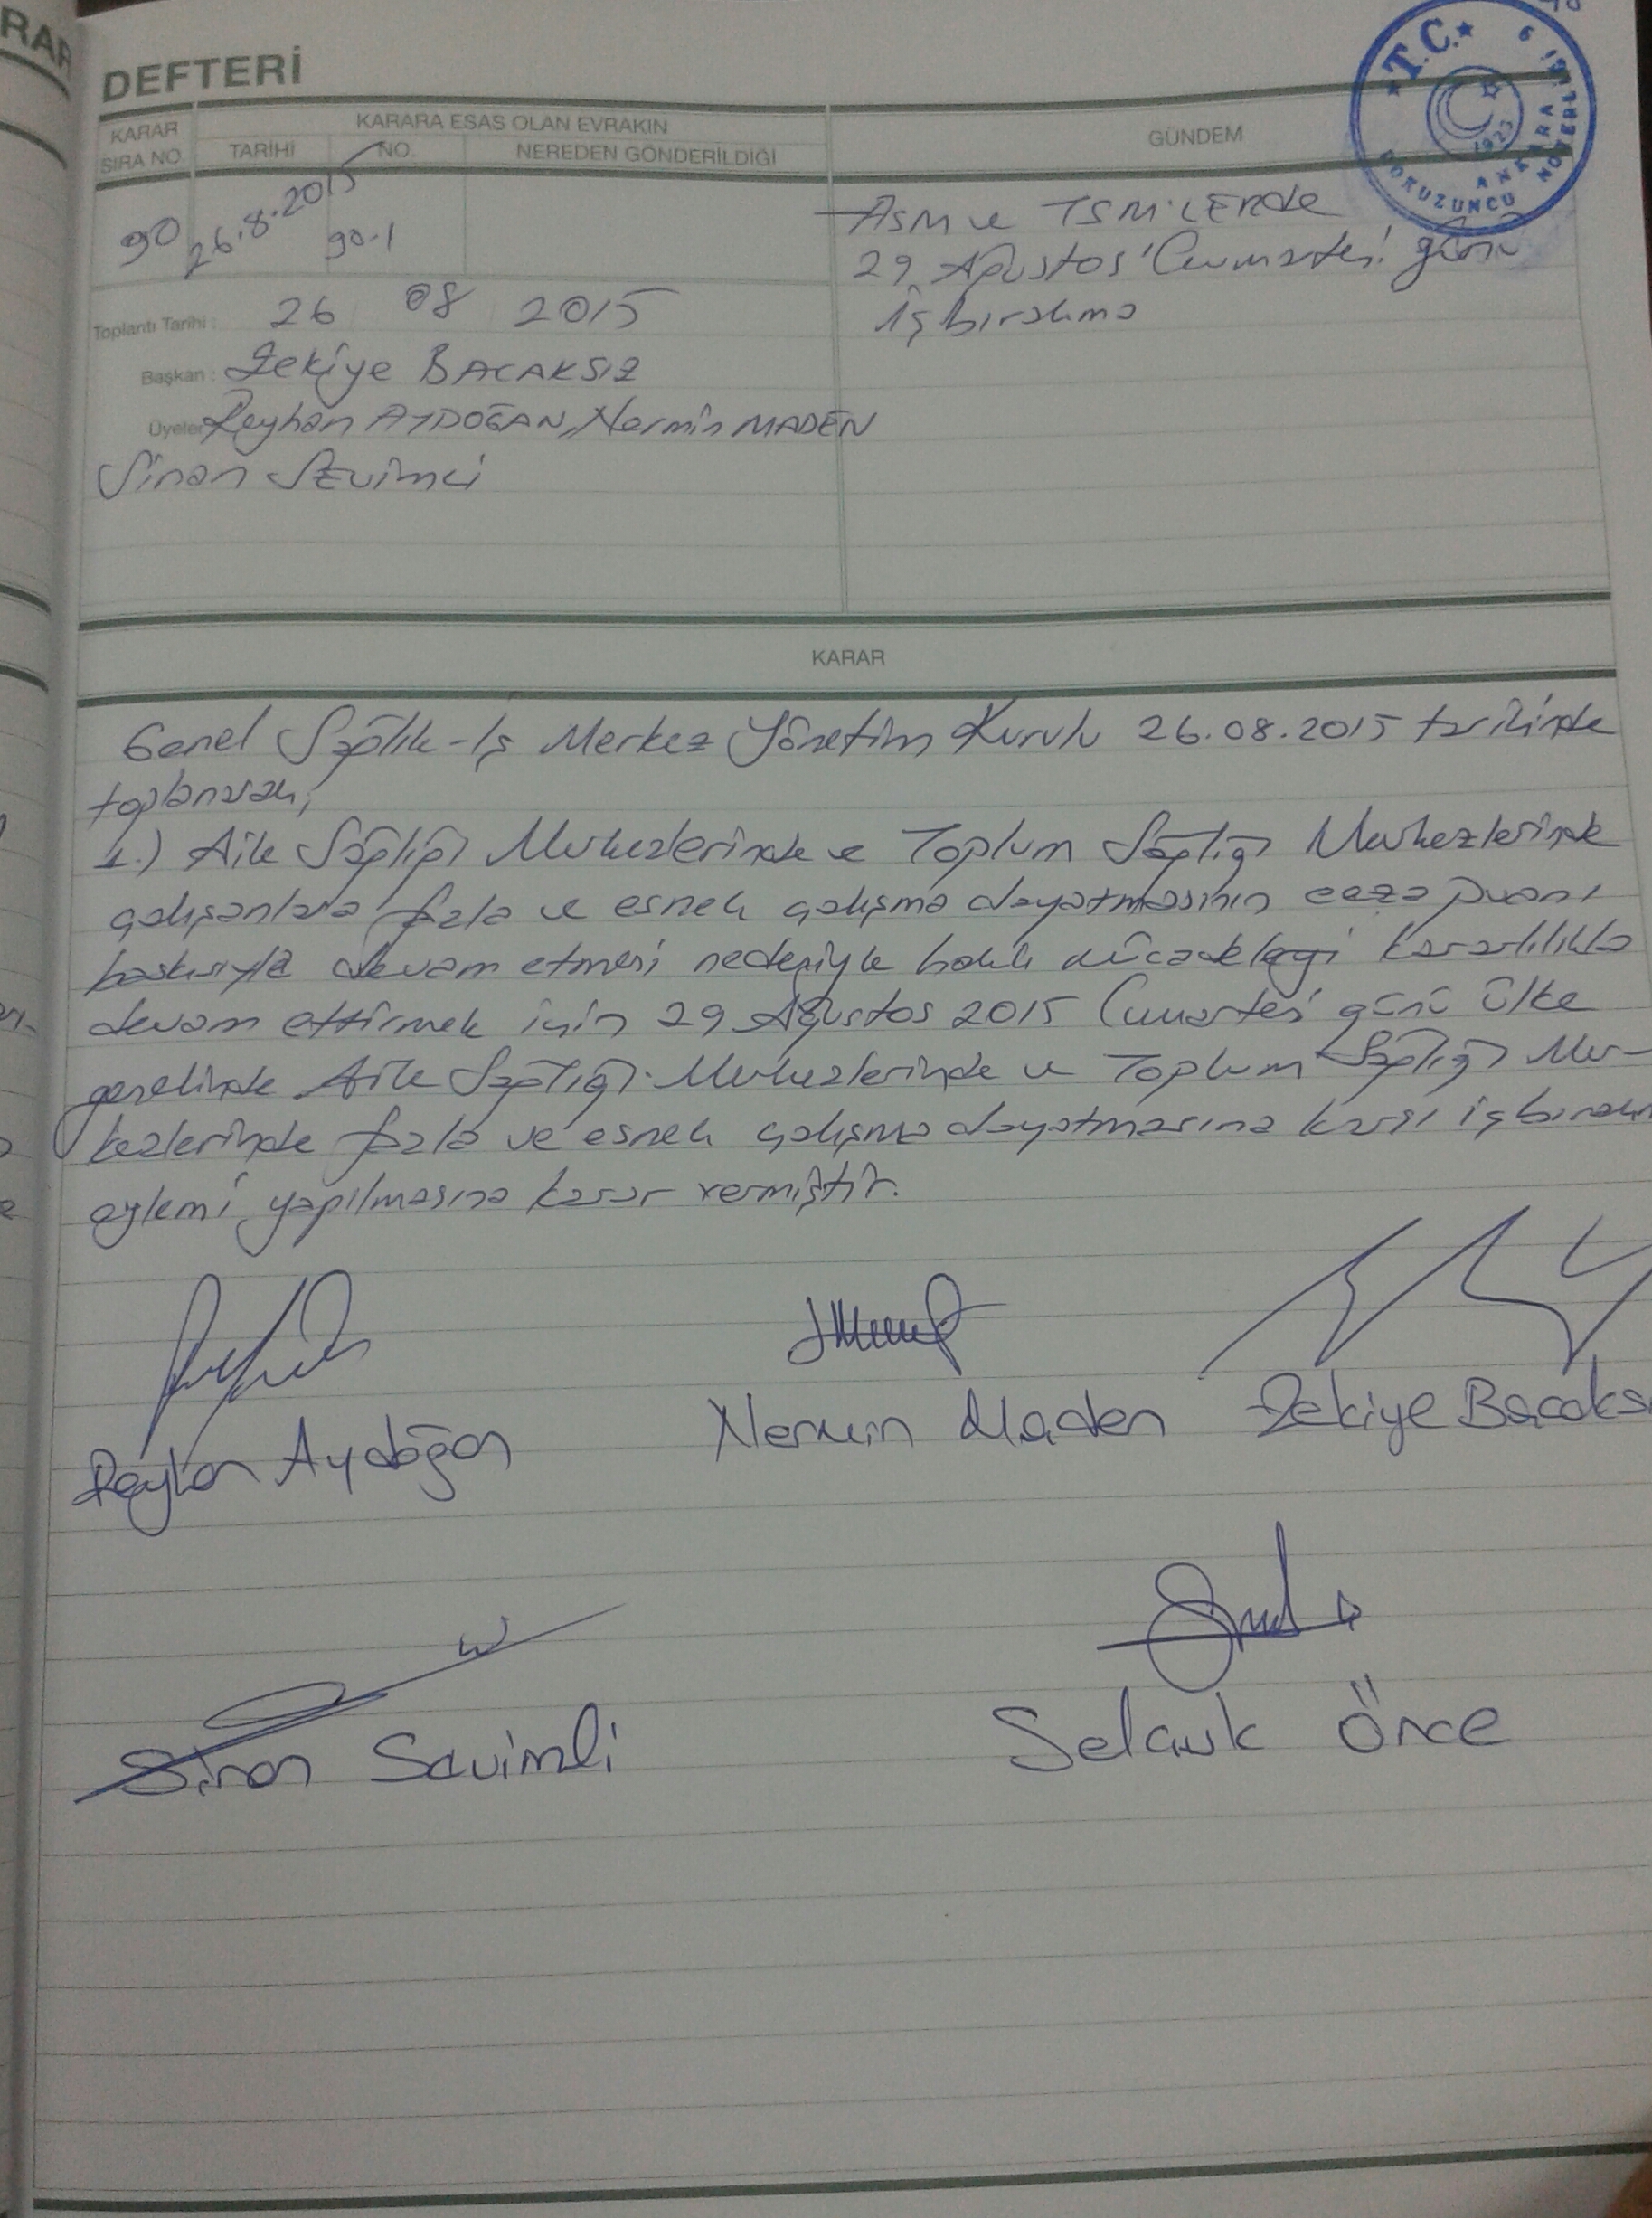 DEFTERİ
KARAR SIRA NO.
KARARA ESAS OLAN EVRAKIN
TARİHİ NO. NEREDEN GÖNDERİLDİĞİ
GÜNDEM
T.C.
1923
ANKARA
DOKUZUNCU
NOTERLİĞİ
90 26.8.2015 90-1
ASM ve TSM'LERde
29 Ağustos Cumartesi günü
işbırakma
Toplantı Tarihi : 26 08 2015
Başkan : Zekiye BACAKSIZ
Üyeler Reyhan AYDOĞAN, Nermin MADEN
Sinan Sevimli
KARAR
Genel Sağlık-İş Merkez Yönetim Kurulu 26.08.2015 tarihinde
toplanarak,
1.) Aile Sağlığı Merkezlerinde ve Toplum Sağlığı Merkezlerinde
çalışanlara fazla ve esnek çalışma dayatmasının ceza puanı
baskısıyla devam etmesi nedeniyle haklı mücadeleyi kararlılıkla
devam ettirmek için 29 Ağustos 2015 Cumartesi günü ülke
genelinde Aile Sağlığı Merkezlerinde ve Toplum Sağlığı Mer-
kezlerinde fazla ve esnek çalışma dayatmasına karşı işbırakma
eylemi yapılmasına karar vermiştir.
Reyhan Aydoğan Nermin Maden Zekiye Bacaks
Sinan Sevimli Selçuk Önce